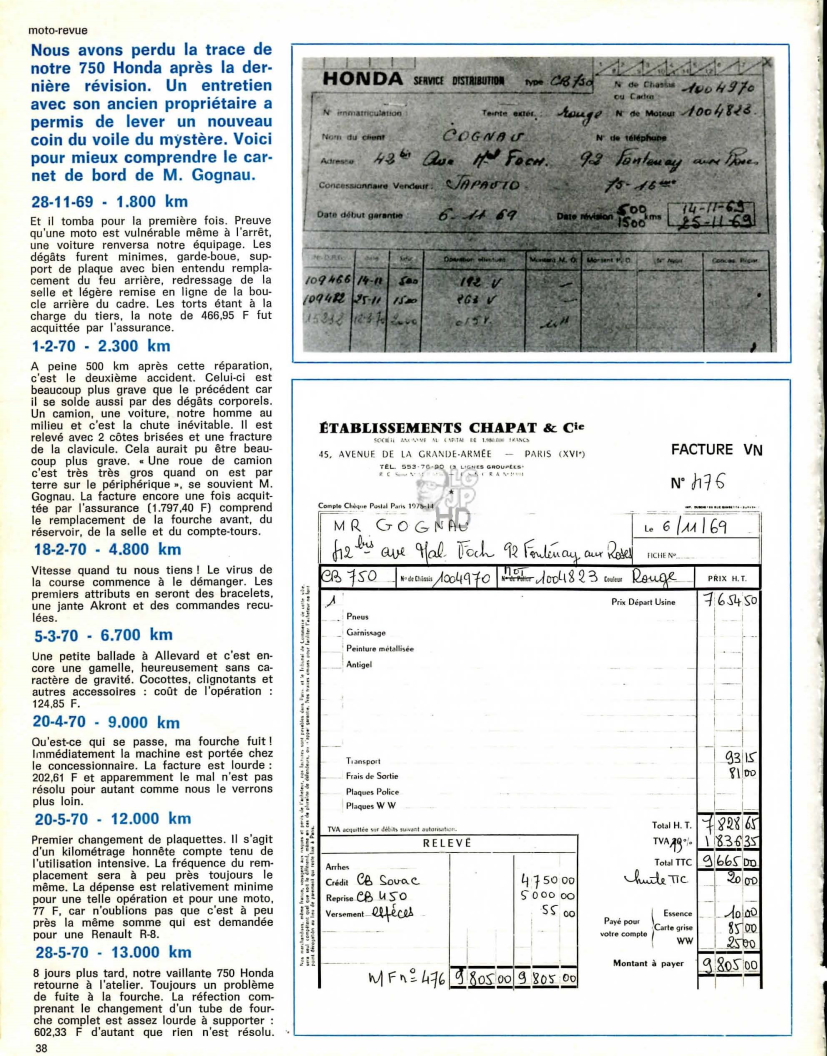 moto-revue
Nous avons perdu la trace de
notre 750 Honda après la der-
nière révision. Un entretien
avec son ancien propriétaire a
permis de lever un nouveau
coin du voile du mystère. Voici
pour mieux comprendre le car-
net de bord de M. Gognau.
28-11-69 - 1.800 km
Et il tomba pour la première fois. Preuve
qu'une moto est vulnérable même à l'arrêt,
une voiture renversa notre équipage. Les
dégâts furent minimes, garde-boue, sup-
port de plaque avec bien entendu rempla-
cement du feu arrière, redressage de la
selle et légère remise en ligne de la bou-
cle arrière du cadre. Les torts étant à la
charge du tiers, la note de 466,95 F fut
acquittée par l'assurance.
1-2-70 - 2.300 km
A peine 500 km après cette réparation,
c'est le deuxième accident. Celui-ci est
beaucoup plus grave que le précédent car
il se solde aussi par des dégâts corporels.
Un camion, une voiture, notre homme au
milieu et c'est la chute inévitable. Il est
relevé avec 2 côtes brisées et une fracture
de la clavicule. Cela aurait pu être beau-
coup plus grave. « Une roue de camion
c'est très très gros quand on est par
terre sur le périphérique », se souvient M.
Gognau. La facture encore une fois acquit-
tée par l'assurance (1.797,40 F) comprend
le remplacement de la fourche avant, du
réservoir, de la selle et du compte-tours.
18-2-70 - 4.800 km
Vitesse quand tu nous tiens ! Le virus de
la course commence à le démanger. Les
premiers attributs en seront des bracelets,
une jante Akront et des commandes recu-
lées.
5-3-70 - 6.700 km
Une petite ballade à Allevard et c'est en-
core une gamelle, heureusement sans ca-
ractère de gravité. Cocottes, clignotants et
autres accessoires : coût de l'opération :
124,85 F.
20-4-70 - 9.000 km
Qu'est-ce qui se passe, ma fourche fuit !
Immédiatement la machine est portée chez
le concessionnaire. La facture est lourde :
202,61 F et apparemment le mal n'est pas
résolu pour autant comme nous le verrons
plus loin.
20-5-70 - 12.000 km
Premier changement de plaquettes. Il s'agit
d'un kilométrage honnête compte tenu de
l'utilisation intensive. La fréquence du rem-
placement sera à peu près toujours le
même. La dépense est relativement minime
pour une telle opération et pour une moto,
77 F, car n'oublions pas que c'est à peu
près la même somme qui est demandée
pour une Renault R-8.
28-5-70 - 13.000 km
8 jours plus tard, notre vaillante 750 Honda
retourne à l'atelier. Toujours un problème
de fuite à la fourche. La réfection com-
prenant le changement d'un tube de four-
che complet est assez lourde à supporter :
602,33 F d'autant que rien n'est résolu.
38
HONDA SERVICE DISTRIBUTION type CB 750 N° de Chassis 1004970
ou Cadre
N° immatriculation Teinte exter. : Rouge N° de Moteur 1004823
Nom du client COGNAU N° de téléphone
Adresse 42 bis Ave Mal Foch. 92 Fontenay aux Roses
Concessionnaire Vendeur : JAPAUTO
Date début garantie 6-11-69 Date révision 500 kms 14-11-69
1500 25-11-69
109466 14-11 500 192 V
25-11 1500 263 V
ÉTABLISSEMENTS CHAPAT & Cie
45, AVENUE DE LA GRANDE-ARMÉE — PARIS (XVIe)
TÉL. 553-76-90 (3 LIGNES GROUPÉES)
FACTURE VN
N° 476
Compte Chèque Postal Paris 1976-14
MR GOGNAU
42 bis ave Mal. Foch 92 Fontenay aux Roses
Le 6/11/69
FICHE N°
CB 750 N° de Châssis 1004970 N° mot 1004823 Couleur Rouge PRIX H.T.
1 Prix Départ Usine 7654 50
Pneus
Garnissage
Peinture métallisée
Antigel
Transport 93 15
Frais de Sortie 81 00
Plaques Police
Plaques W W
TVA acquittée sur débits suivant autorisation.
Total H. T. 7828 65
TVA 19 % 1836 35
Total TTC 9665 00
huile TTC 20 00
Payé pour votre compte
Essence 10 00
Carte grise 85 00
WW 25 00
Montant à payer 9805 00
RELEVÉ
Arrhes
Crédit CB Sovac 4750 00
Reprise CB 450 5000 00
Versement espèces 55 00
MF n° 476 9805 00 9805 00